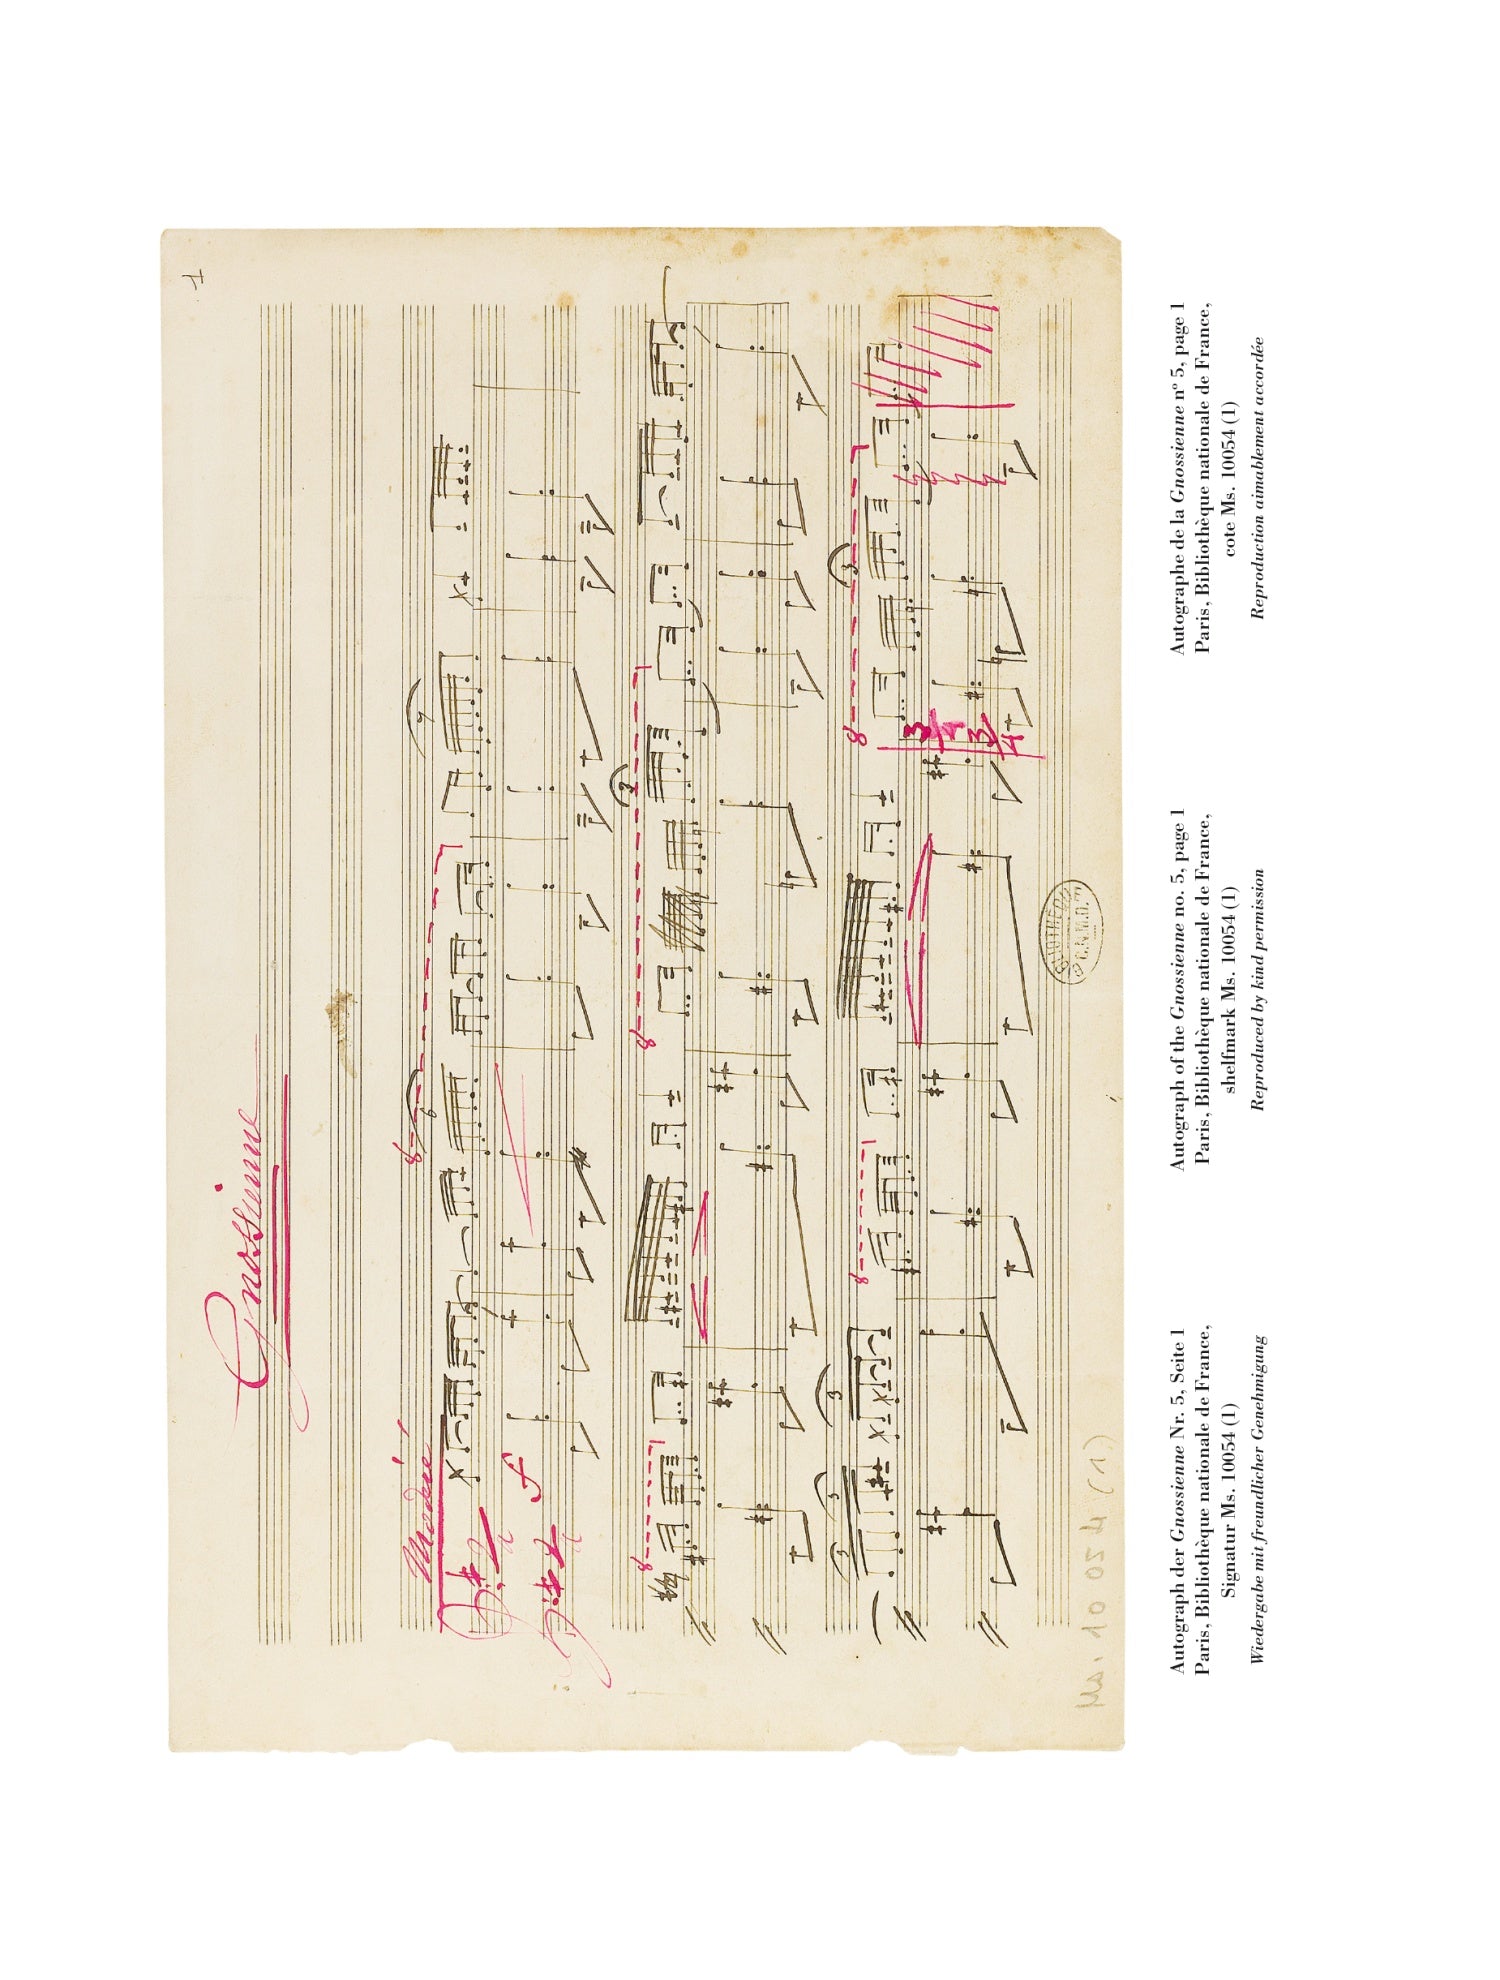 1
Gnossienne
Modéré
f
7
6
8
8
8
3
8
8
3
3
3
3
3
2
3
4
BIBLIOTHÈQUE
Ms. 10 054 (1)
Autograph der Gnossienne Nr. 5, Seite 1
Paris, Bibliothèque nationale de France,
Signatur Ms. 10054 (1)
Wiedergabe mit freundlicher Genehmigung
Autograph of the Gnossienne no. 5, page 1
Paris, Bibliothèque nationale de France,
shelfmark Ms. 10054 (1)
Reproduced by kind permission
Autographe de la Gnossienne nº 5, page 1
Paris, Bibliothèque nationale de France,
cote Ms. 10054 (1)
Reproduction aimablement accordée